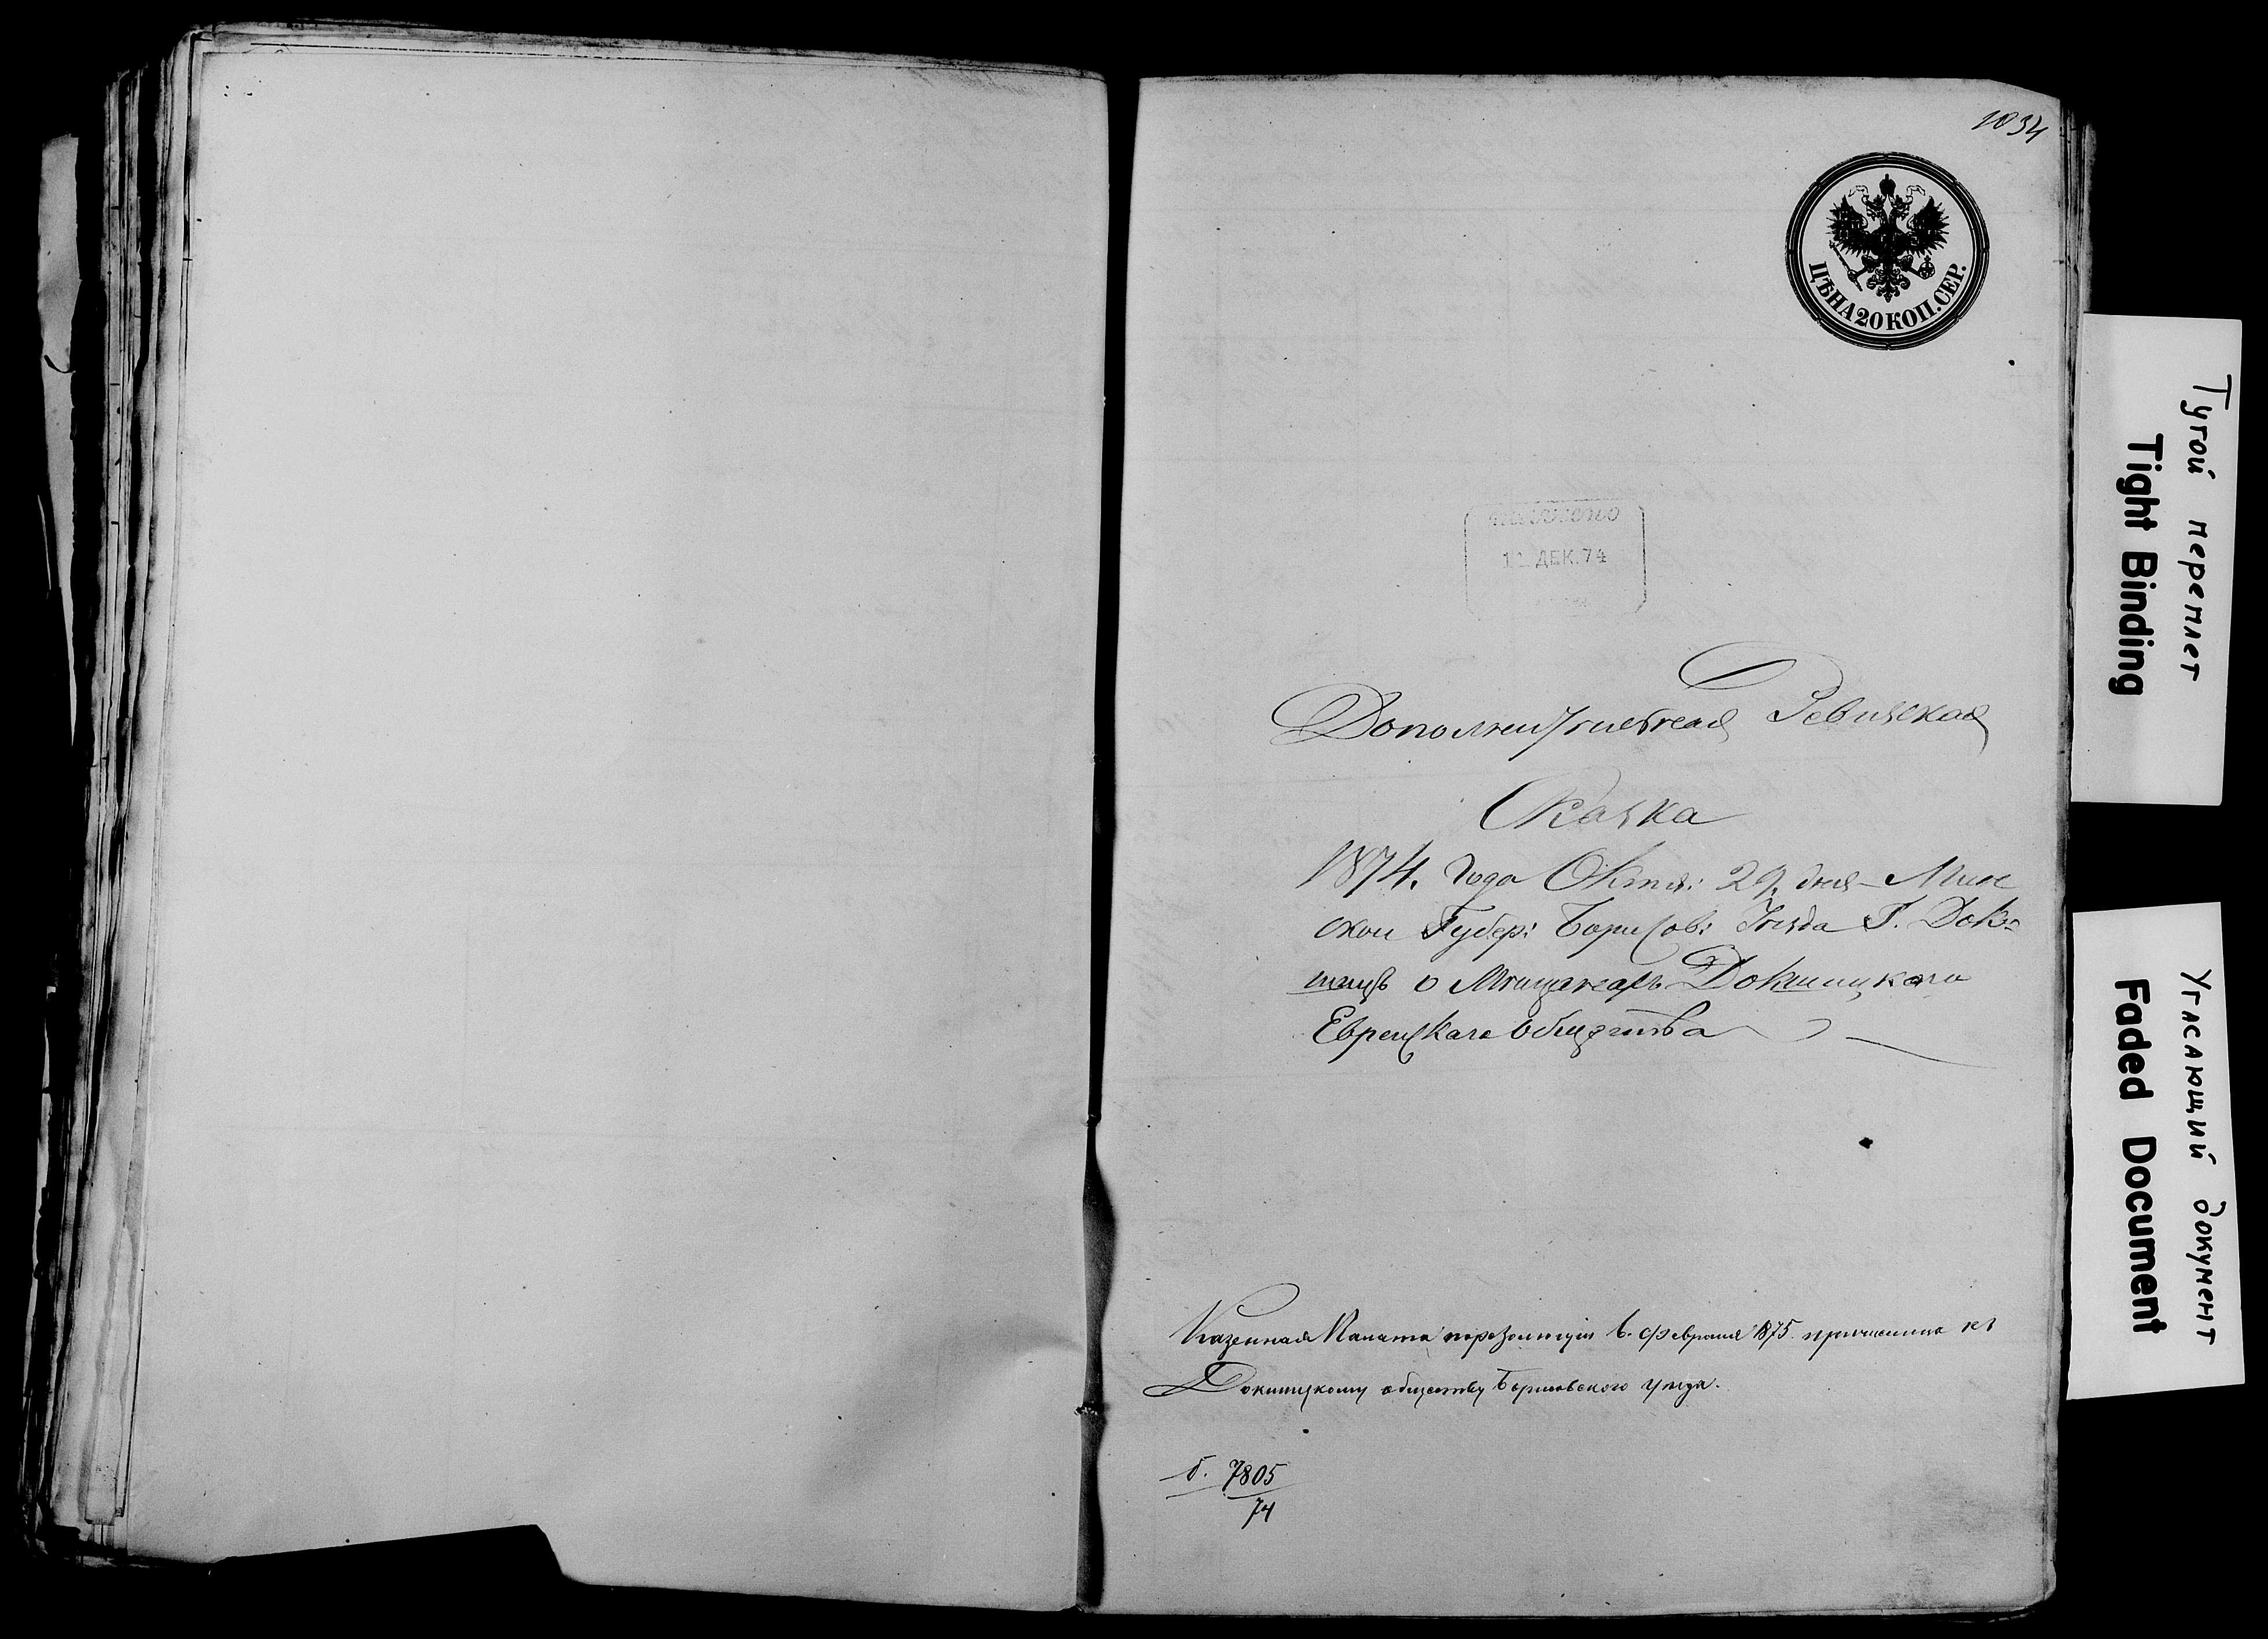 1034
ЦѢНА 20 КОП. СЕР.
11 ДЕК. 74
Дополнительная Ревизская
Сказка
1874. Года Октя: 29. дня Мин
ской Губер: Борисов: Уѣзда Г. Док=
шицъ о Мѣщанахъ Докшицкаго
Еврейскаго общества
Казенная Палата порезолюціи 6. февраля 1875. причислила къ
Докшицкому обществу Борисовского уѣзда.
7805
74
Тугой переплет
Tight Binding
Угасающий документ
Faded Document